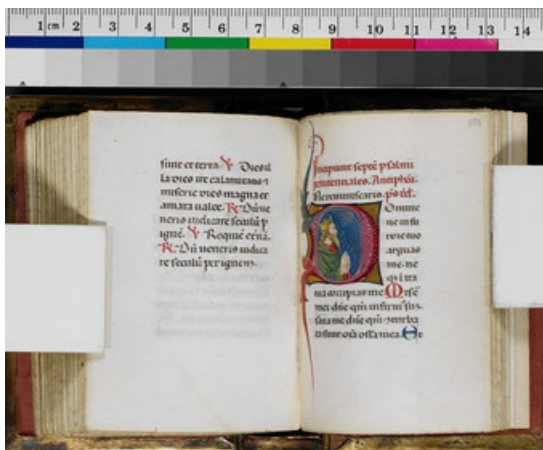 1 cm 2 3 4 5 6 7 8 9 10 11 12 13 14
sunt et terra. V Dies il
la dies ire calamitatis ⁊
miserie dies magna et
amara valde. R Dū ve
neris iudicare seculū p
ignē. V Requiē eternā.
R Dū veneris iudica
re seculū per ignem.
Incipiunt septē psalmi
penitentiales. Antiphā.
Ne reminiscaris. ps dd.
Domine
ne in fu
rore tuo
arguas
me. ne
qȝ i ira
tua corripias me. Mise
rere mei dn̄e qm̄ infirmꝰ suꝫ
sana me dn̄e qm̄ ↄturba
ta sunt oīa ossa mea. Et